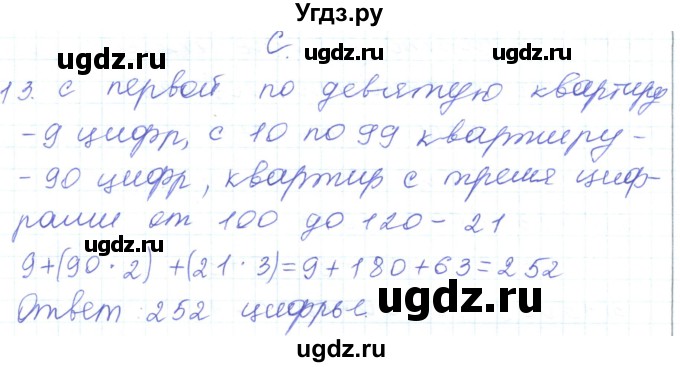 Угдз.ру
ugdz.ru ugdz.ru
С.
13. С первой по девятую квартиру
- 9 цифр, с 10 по 99 квартиру -
ugdz.ru
- 90 цифр, квартир с тремя циф-
рами от 100 до 120 - 21
ugdz.ru ugdz.ru
9+(90·2)+(21·3)=9+180+63=252
ugdz.ru
Ответ: 252 цифры.
ugdz.ru